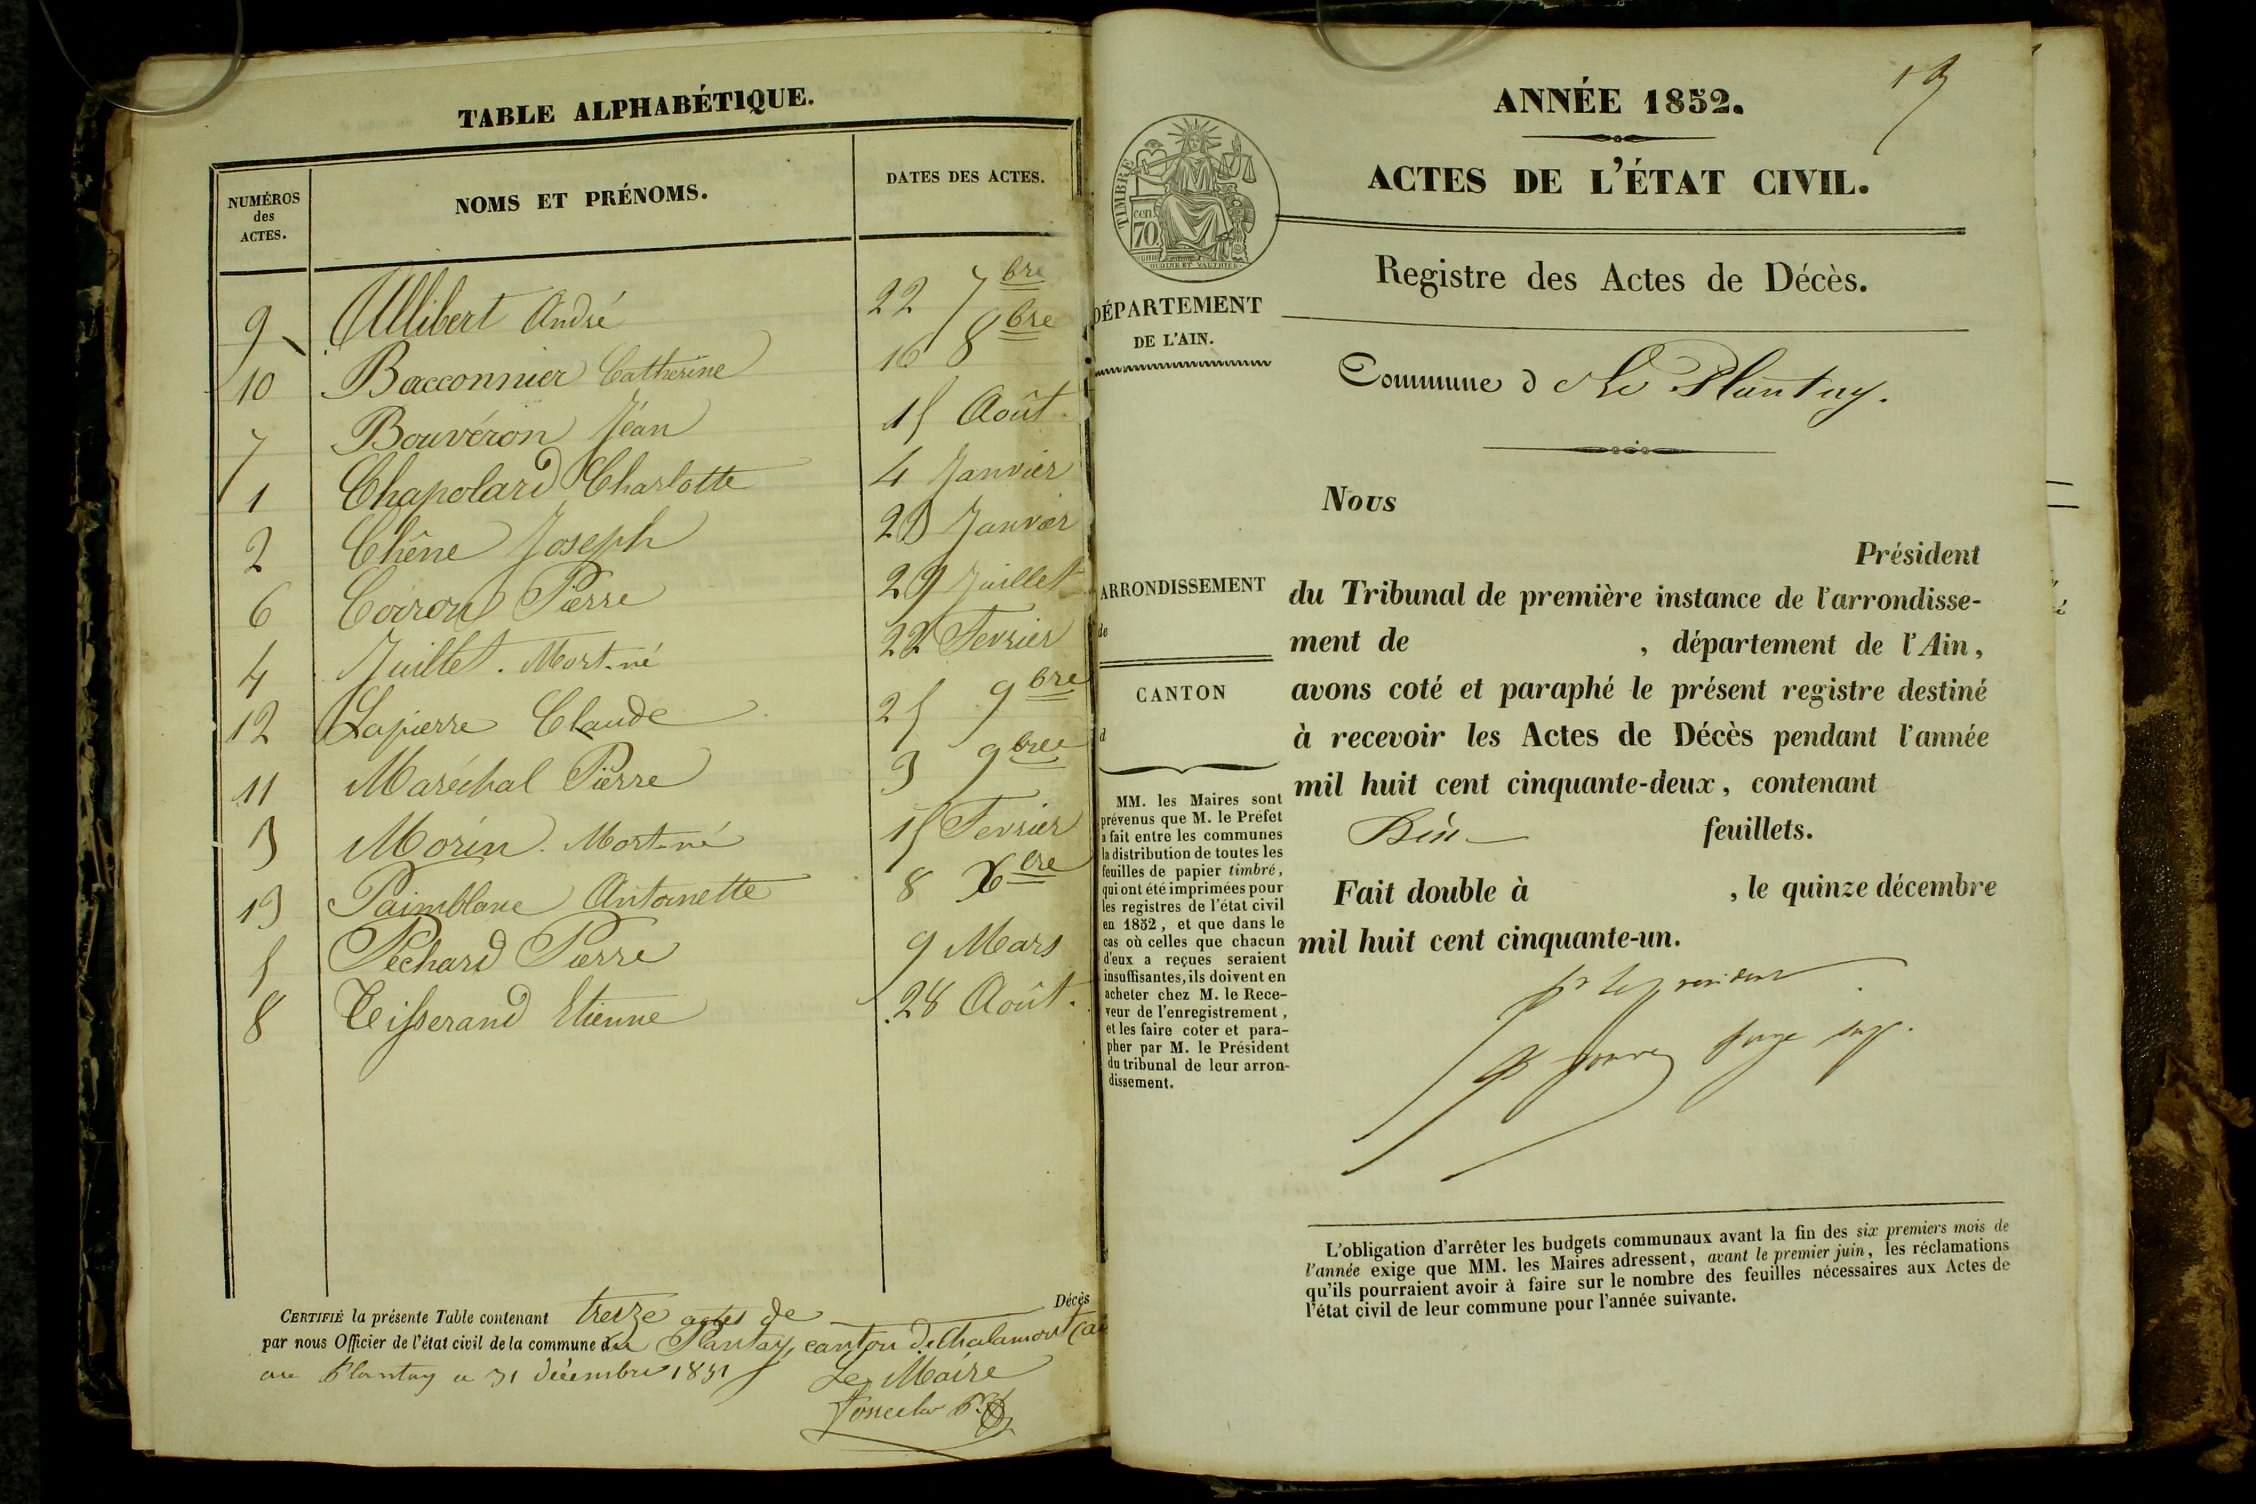 TABLE ALPHABÉTIQUE.
NUMÉROS des ACTES.
NOMS ET PRÉNOMS.
DATES DES ACTES.
9 Allibert André 22 7bre
10 Bacconnier Catherine 16 8bre
7 Bouvéron Jéan 15 Août
1 Chapolard Charlotte 4 Janvier
2 Chêne Joseph 23 Janvier
6 Coiron Pierre 29 Juillet
4 Juillet. Mort-né 22 Fevrier
12 Lapierre Claude 25 9bre
11 Maréchal Pierre 3 9bre
3 Morin. Mort-né 15 Fevrier
13 Paimblanc Antoinette 8 Xbre
5 Péchard Pierre 9 Mars
8 Teisserand Etienne 28 Août.
CERTIFIÉ la présente Table contenant treize actes de Décès
par nous Officier de l'état civil de la commune du Plantay, canton de Chalamont
au Plantay le 31 décembre 1851
Le Maire
19
ANNÉE 1852.
ACTES DE L'ÉTAT CIVIL.
TIMBRE
cen. 70.
OUDINÉ ET VAUTHIER
Registre des Actes de Décès.
DÉPARTEMENT
DE L'AIN.
Commune d Le Plantay.
Nous
Président
du Tribunal de première instance de l'arrondisse-
ment de , département de l'Ain,
avons coté et paraphé le présent registre destiné
à recevoir les Actes de Décès pendant l'année
mil huit cent cinquante-deux, contenant
feuillets.
Fait double à , le quinze décembre
mil huit cent cinquante-un.
pr le président
juge sup.
ARRONDISSEMENT
de
CANTON
d
MM. les Maires sont
prévenus que M. le Préfet
a fait entre les communes
la distribution de toutes les
feuilles de papier timbré,
qui ont été imprimées pour
les registres de l'état civil
en 1852, et que dans le
cas où celles que chacun
d'eux a reçues seraient
insuffisantes, ils doivent en
acheter chez M. le Rece-
veur de l'enregistrement,
et les faire coter et para-
pher par M. le Président
du tribunal de leur arron-
dissement.
L'obligation d'arrêter les budgets communaux avant la fin des six premiers mois de
l'année exige que MM. les Maires adressent, avant le premier juin, les réclamations
qu'ils pourraient avoir à faire sur le nombre des feuilles nécessaires aux Actes de
l'état civil de leur commune pour l'année suivante.